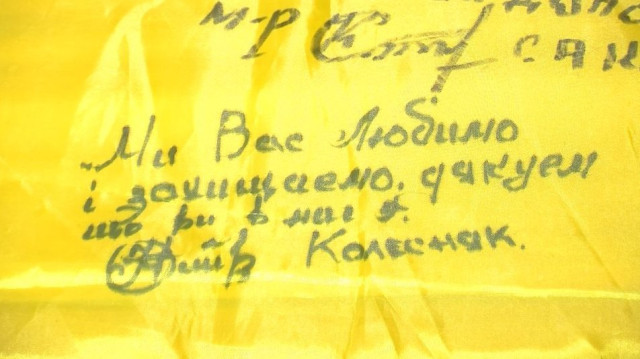 м-р САН
Ми Вас Любимо
і захищаемо, дякуем
що ви в нас є.
Колесняк.